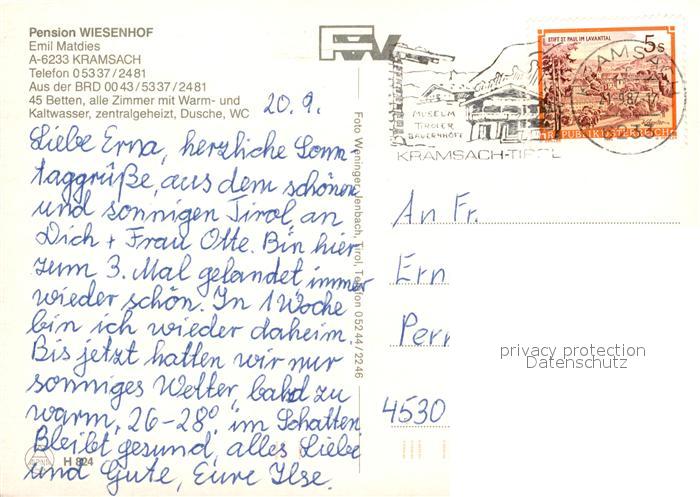 Pension WIESENHOF
Emil Matdies
A-6233 KRAMSACH
Telefon 0 53 37 / 24 81
Aus der BRD 00 43 / 53 37 / 24 81
45 Betten, alle Zimmer mit Warm- und
Kaltwasser, zentralgeheizt, Dusche, WC
20. 9.
Liebe Erna, herzliche Sonn-
taggrüße, aus dem schönen
und sonnigen Tirol an
Dich + Frau Otte. Bin hier
zum 3. Mal gelandet immer
wieder schön. In 1 Woche
bin ich wieder daheim.
Bis jetzt hatten wir nur
sonniges Wetter, bald zu
warm, 26-28° im Schatten
Bleibt gesund, alles Liebe
und Gute, Eure Ilse.
H 824
Foto Weninger, Jenbach, Tirol, Telefon 0 52 44 / 22 46
MUSEUM
TIROLER
BAUERNHÖFE
KRAMSACH-TIROL
STIFT ST. PAUL IM LAVANTTAL
5 S
REPUBLIK ÖSTERREICH
KRAMSACH
An Fr.
Ern
Perr
4530
privacy protection
Datenschutz